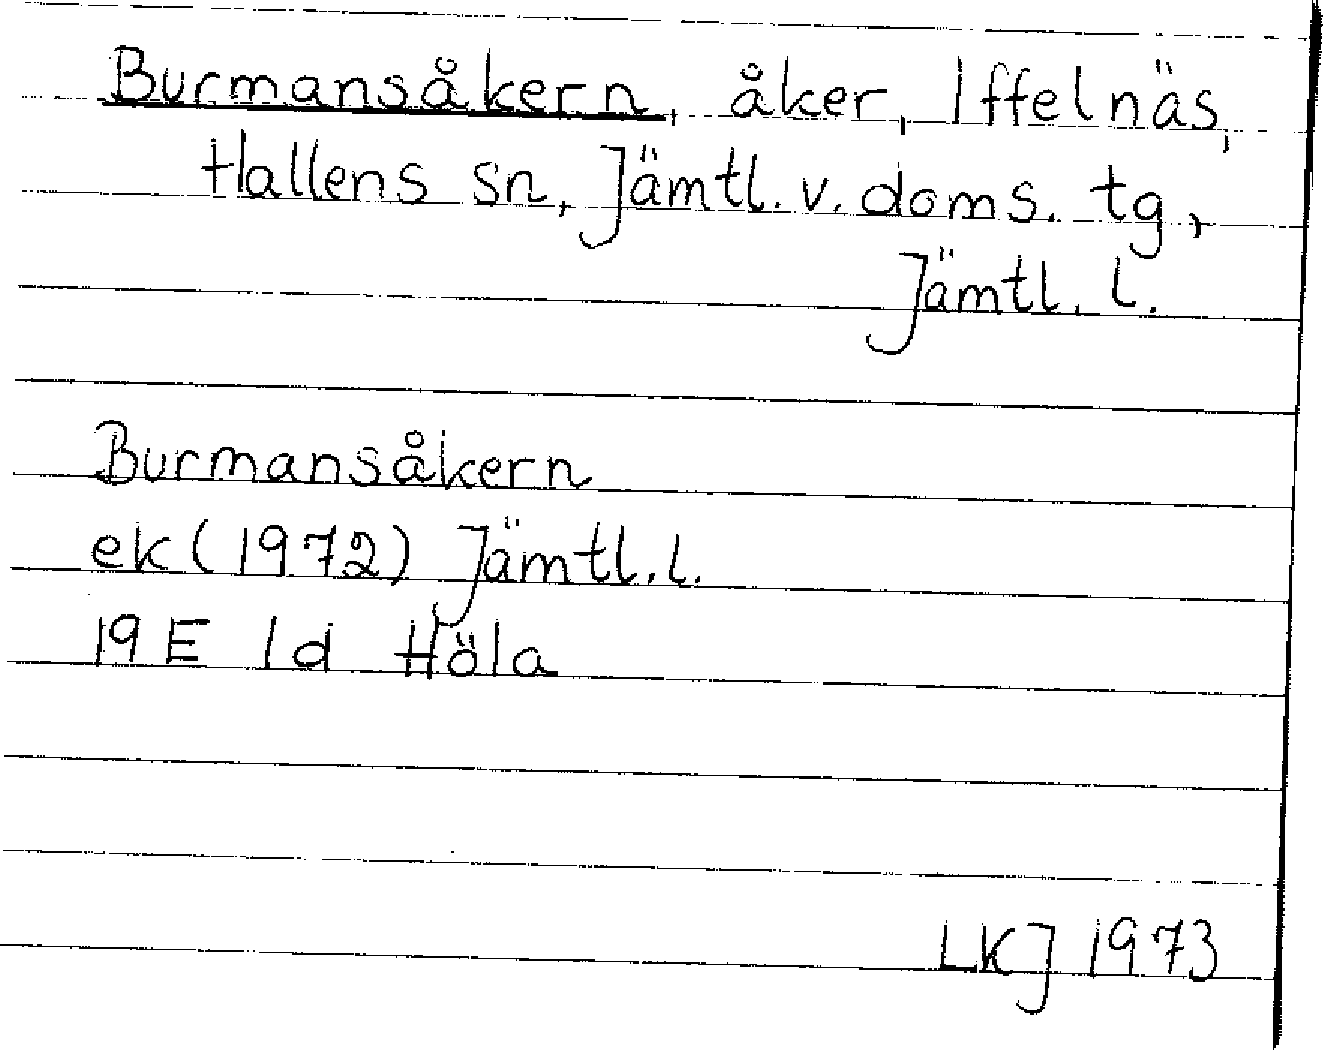 Burmansåkern, åker, Iffelnäs,
Hallens sn, Jämtl. v. doms. tg,
Jämtl. l.
Burmansåkern
ek (1972) Jämtl. l.
19 E 1d Höla
LKJ 1973